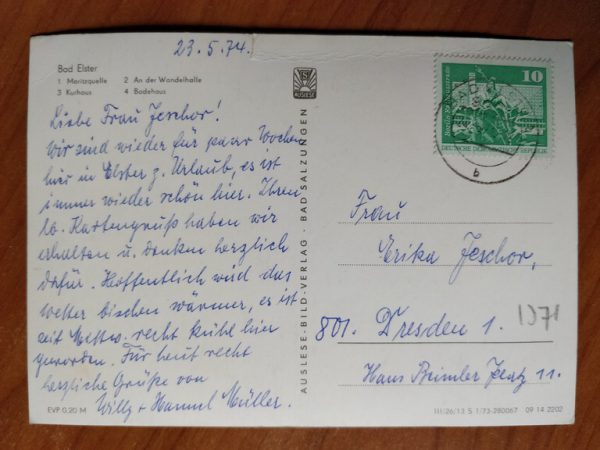 23.5.74.
Bad Elster
1 Moritzquelle 2 An der Wandelhalle
3 Kurhaus 4 Badehaus
Liebe Frau Jeschor!
Wir sind wieder für paar Wochen
hier in Elster z. Urlaub, es ist
immer wieder schön hier. Ihren
lb. Kartengruß haben wir
erhalten u. danken herzlich
dafür. Hoffentlich wird das
Wetter bischen wärmer, es ist
seit Mittw. recht kühl hier
geworden. Für heut recht
herzliche Grüße von
Willy + Hannel Müller.
EVP 0,20 M
AUSLESE
AUSLESE-BILD-VERLAG · BAD SALZUNGEN
10
DEUTSCHE DEMOKRATISCHE REPUBLIK
b
Frau
Erika Jeschor,
801. Dresden 1.
1971
Hans Beimler Platz 11.
III/26/13 S 1/73-280067 09 14 2202